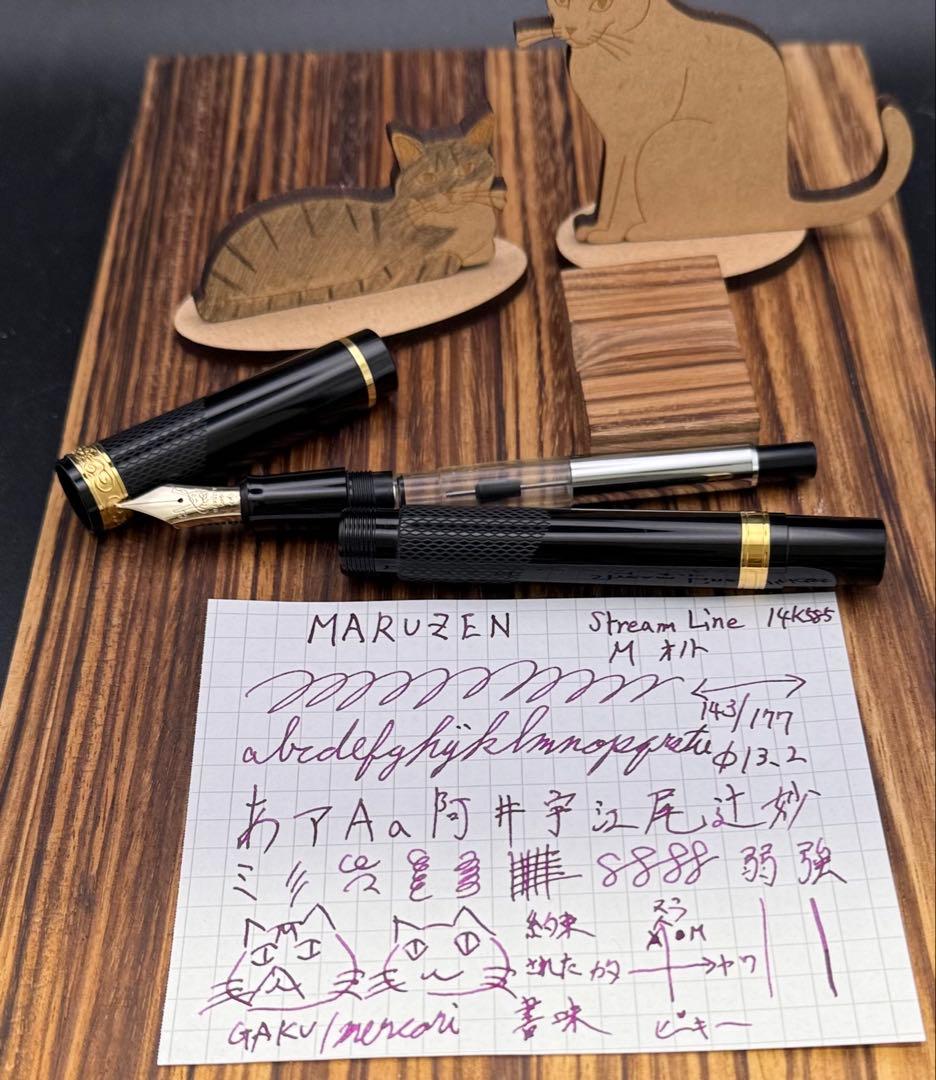 MARUZEN Stream Line 14K585
M オルト
143/177
abcdefghijklmnopqrstu φ13.2
あ ア A a 阿 井 宇 江 尾 辻 妙
ミ 弱 強
約束 ヌラ
•M
された カタ ヤワ
GAKU/mercari 書味 ピキー